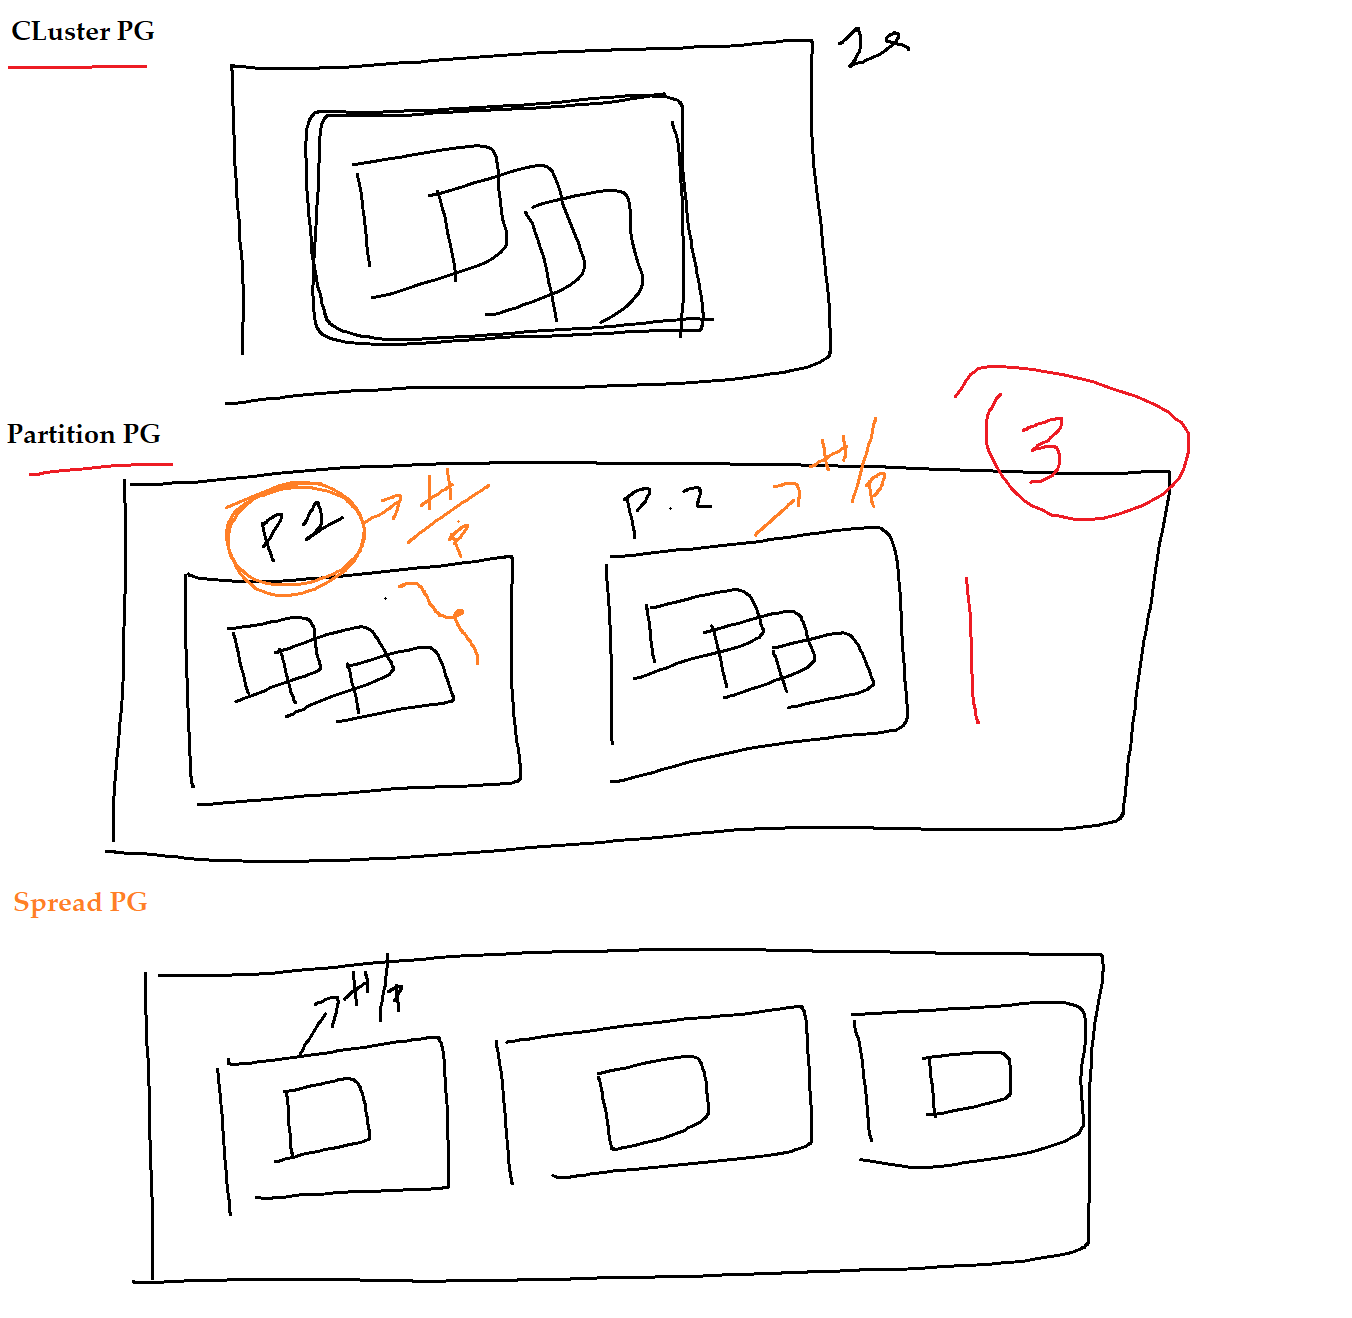 CLuster PG
Partition PG
3
H/P
H/P
P 1
P. 2
Spread PG
H/P